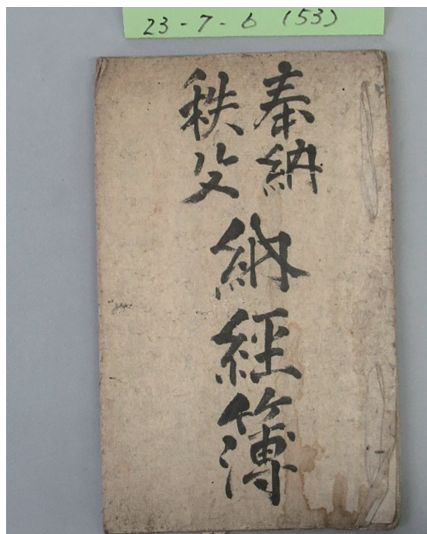 23-7-6 (53)
奉納
秩父
納経簿